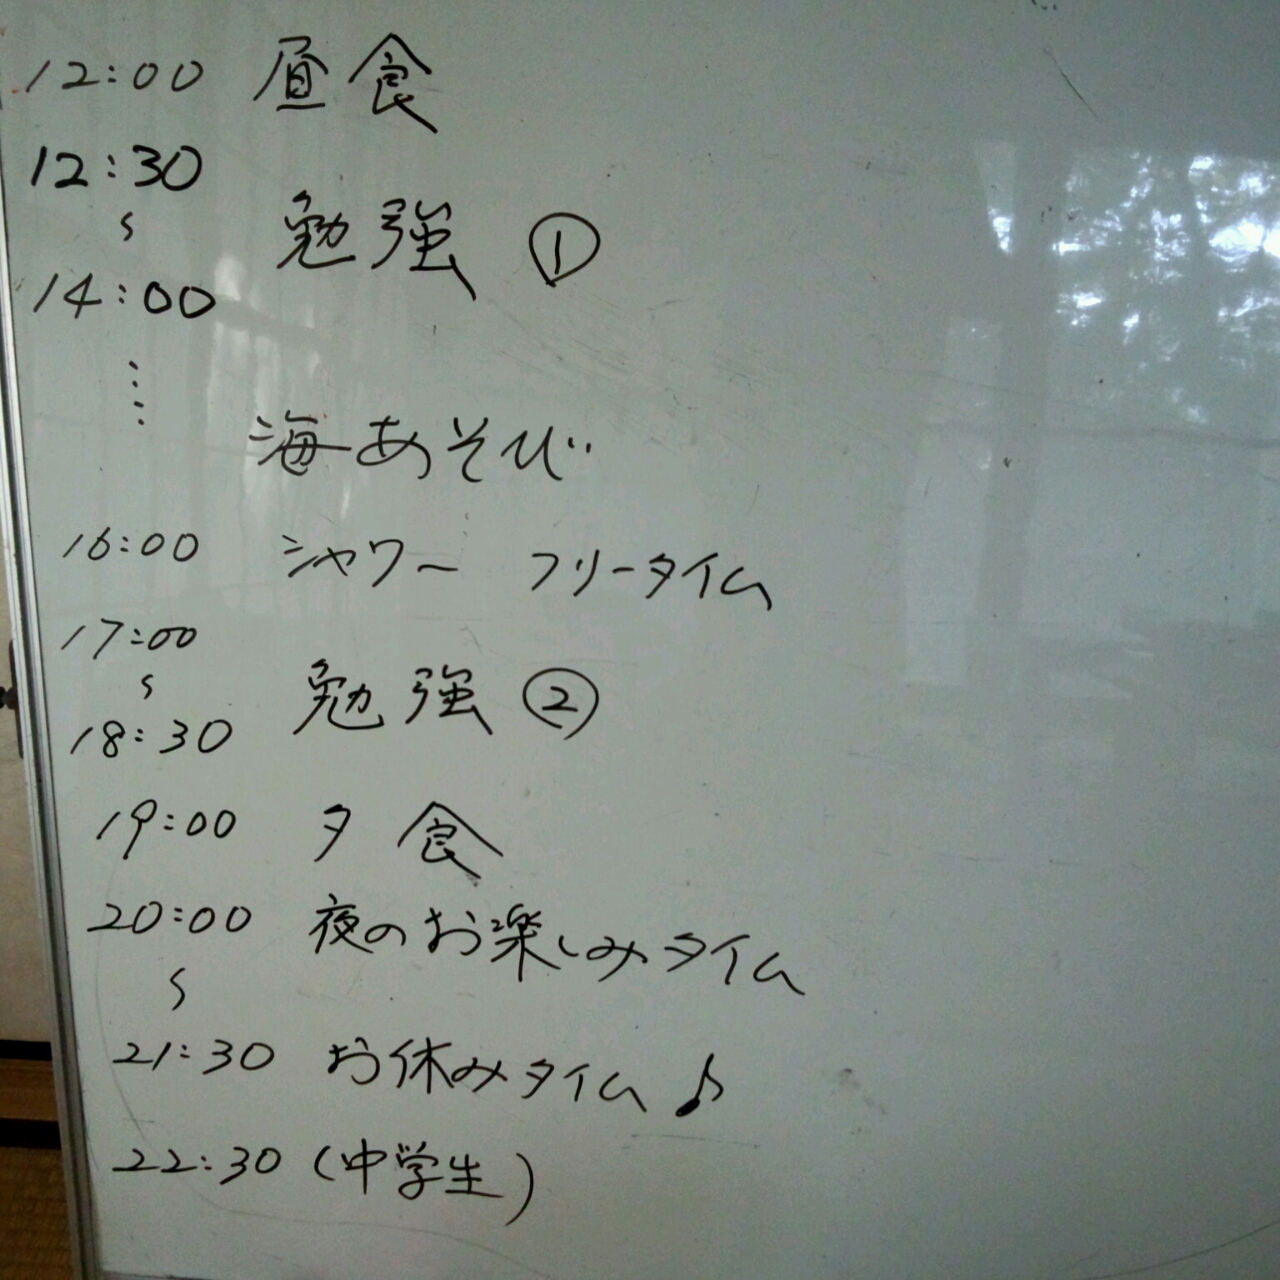 12:00 昼食
12:30
〜
勉強 ①
14:00
⋮
海あそび
16:00 シャワー フリータイム
17:00
〜
勉強 ②
18:30
19:00 夕食
20:00 夜のお楽しみタイム
〜
21:30 お休みタイム♪
22:30 (中学生)